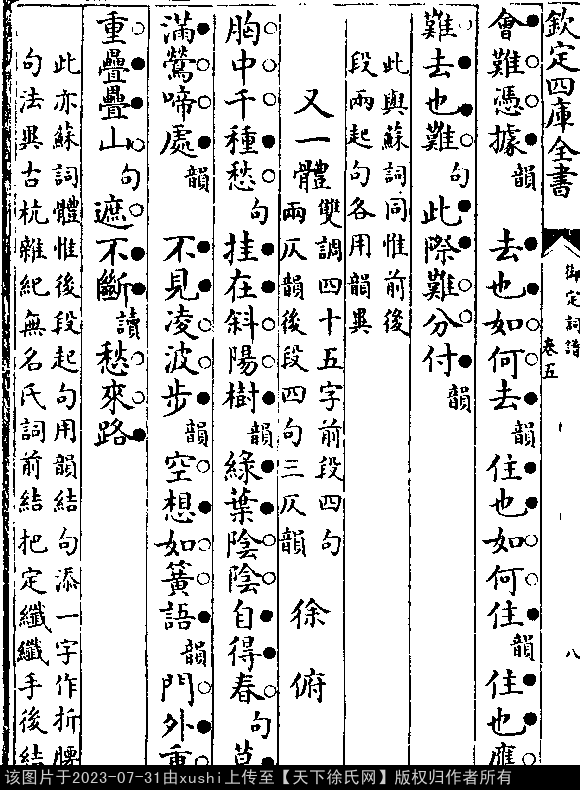 欽定四庫全書
御定詞譜
卷五
八
會難憑據韻 去也如何去韻住也如何住韻住也應
難去也難句此際難分付韻
此與蘇詞同惟前後
段兩起句各用韻異
又一體 雙調四十五字前段四句
兩仄韻後段四句三仄韻 徐俯
胸中千種愁句挂在斜陽樹韻綠葉陰陰自得春句草
滿鶯啼處韻 不見凌波步韻空想如簧語韻門外重
重疊疊山句遮不斷讀愁來路
此亦蘇詞體惟後段起句用韻結句添一字作折腰
句法異古杭雜紀無名氏詞前結把定纖纖手後結
该图片于2023-07-31由xushi上传至【天下徐氏网】版权归作者所有